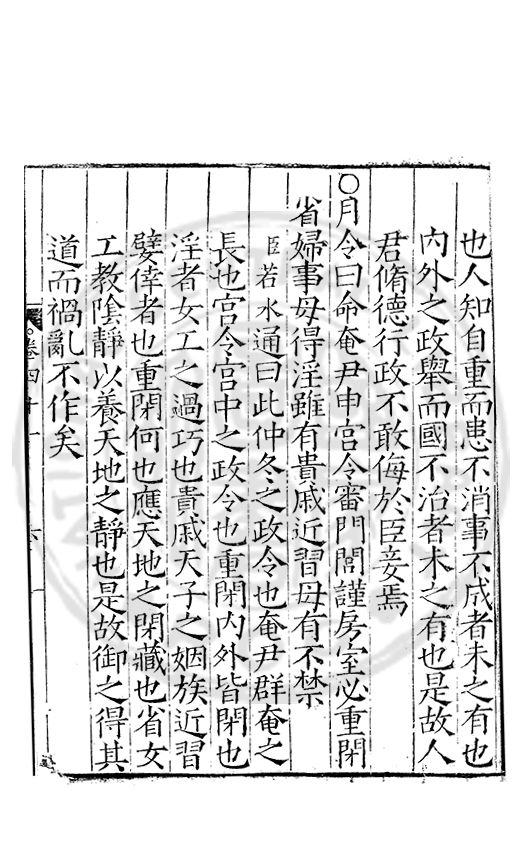 也人知自重而患不消事不成者未之有也
內外之政舉而國不治者未之有也是故人
君脩德行政不敢侮於臣妾焉
○月令曰命奄尹申宮令審門閭謹房室必重閉
省婦事毋得淫雖有貴戚近習毋有不禁
臣若水通曰此仲冬之政令也奄尹群奄之
長也宮令宮中之政令也重閉內外皆閉也
淫者女工之過巧也貴戚天子之姻族近習
嬖倖者也重閉何也應天地之閉藏也省女
工教陰靜以養天地之靜也是故御之得其
道而禍亂不作矣
卷四十一
六